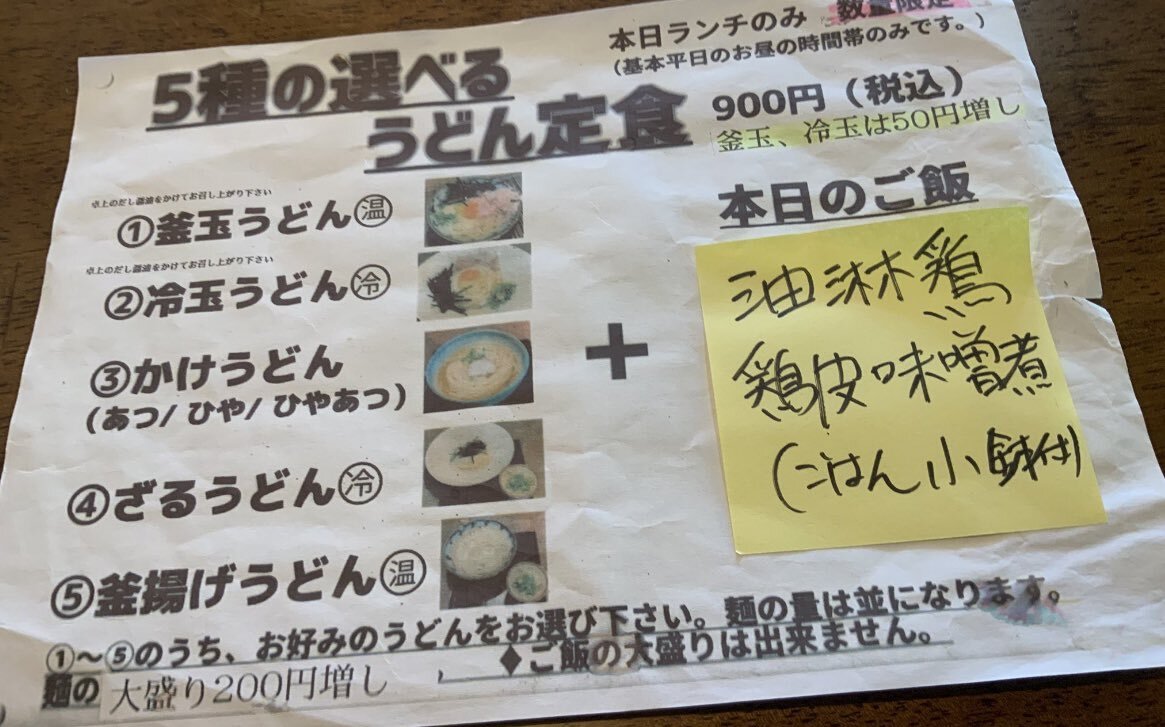 本日ランチのみ 数量限定
(基本平日のお昼の時間帯のみです。)
5種の選べる
うどん定食
900円(税込)
釜玉、冷玉は50円増し
卓上のだし醤油をかけてお召し上がり下さい
①釜玉うどん㊟温
卓上のだし醤油をかけてお召し上がり下さい
②冷玉うどん冷
③かけうどん
(あつ/ひや/ひやあつ)
④ざるうどん冷
⑤釜揚げうどん温
+
本日のご飯
油淋鶏
鶏皮味噌煮
(ごはん小鉢付)
①～⑤のうち、お好みのうどんをお選び下さい。麺の量は並になります。
麺の大盛り200円増し
♦ご飯の大盛りは出来ません。